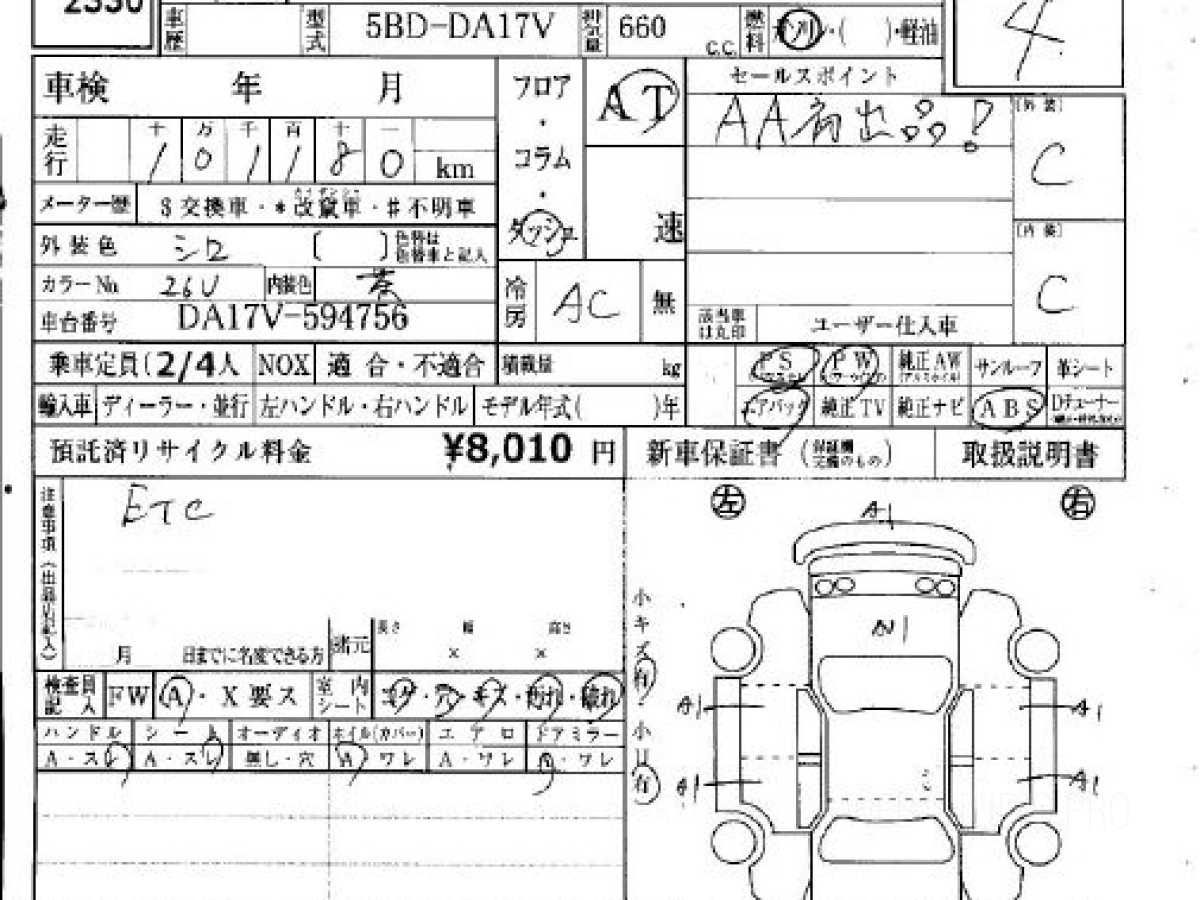 2330
車歴
型式
5BD-DA17V
排気量
660
C.C.
燃料
ガソリン・(　　)・軽油
4
車検　　年　　月
フロア・コラム・ダッシュ
AT
速
セールスポイント
AA初出品!
[外装]
C
走行
十 万 千 百 十 一
1 0 1 1 8 0 km
メーター歴
$交換車・*改竄車・#不明車
[内装]
C
外装色
シロ
[　　]
色替は色替車と記入
カラーNo.
26U
内装色
茶
冷房
AC
無
車台番号
DA17V-594756
該当車は丸印
ユーザー仕入車
乗車定員(2/4人
NOX
適合・不適合
積載量
kg
PS
PW
純正AW
サンルーフ
革シート
輸入車
ディーラー・並行
左ハンドル・右ハンドル
モデル年式(　　)年
エアバック
純正TV
純正ナビ
ABS
Dチューナー
預託済リサイクル料金
¥8,010 円
新車保証書
取扱説明書
注意事項(出品店記入)
ETC
左
右
A1
A1
小キズ有・小凹有
月
日までに名変できる方
諸元
長さ
幅
高さ
×
×
検査員記入
FW
A・X要ス
室内シート
コゲ・穴・キズ・汚れ・破れ
A1
A1
ハンドル
シート
オーディオ
ホイル(カバー)
エアロ
ドアミラー
A・スレ
A・スレ
無し・穴
A・ワレ
A・ワレ
A・ワレ
A1
A1